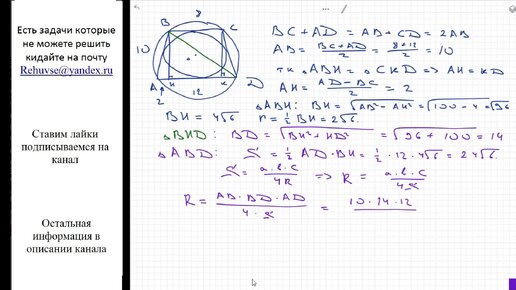 Есть задачи которые
не можете решить
кидайте на почту
Rehuvse@yandex.ru
Ставим лайки
подписываемся на
канал
Остальная
информация в
описании канала
B 8 C
10
A H K D
2
12
BC + AD = AB + CD = 2AB
AB = (BC + AD)/2 = (8 + 12)/2 = 10
т.к △ABH = △CKD => AH = KD
AH = (AD - BC)/2 = 2
△ABH: BH = √(AB² - AH²) = √(100 - 4) = √96
BH = 4√6 r = 1/2 BH = 2√6.
△BHD: BD = √(BH² + HD²) = √(96 + 100) = 14
△ABD: S = 1/2 AD · BH = 1/2 · 12 · 4√6 = 24√6.
S = a·b·c/4R => R = a·b·c/4S
R = AB · BD · AD/4 · S = 10 · 14 · 12